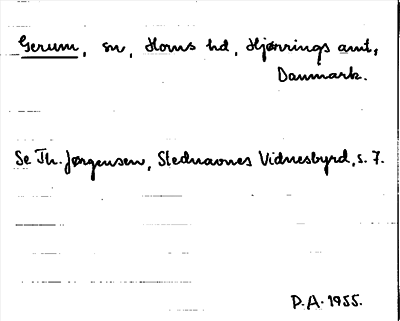 Gerum, sn, Horns hd, Hjørrings amt,
Danmark.
Se Th. Jørgensen, Stednavnes Vidnesbyrd, s. 7.
P.A. 1955.